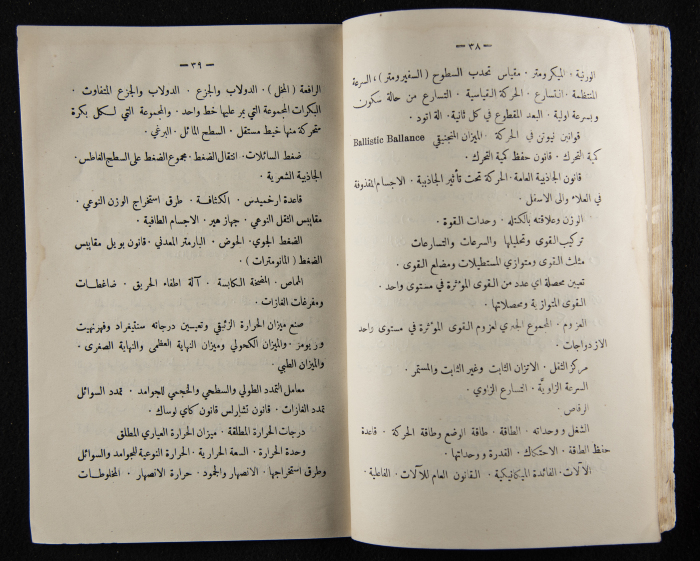 — ٣٨ —
الورنية . الميكرومتر . مقياس تحدب السطوح ( السفيرومتر ) ، السرعة
المنتظمة . التسارع . الحركة القياسية . التسارع من حالة سكون
وبسرعة اولية . البعد المقطوع في كل ثانية . آلة اتود .
قوانين نيوتن في الحركة . الميزان المنجنيقي Ballistic Ballance
كمية التحرك . قانون حفظ كمية التحرك .
قانون الجاذبية العامة . الحركة تحت تأثير الجاذبية . الاجسام المقذوفة
في العلاء والى الاسفل .
الوزن وعلاقته بالكتله . وحدات القوة .
تركيب القوى وتحليلها والسرعات والتسارعات
مثلث القوى ومتوازي المستطيلات ومضلع القوى .
تعيين محصلة اي عدد من القوى المؤثرة في مستوى واحد .
القوى المتوازية ومحصلاتها .
العزوم . المجموع الجبري لعزوم القوى المؤثرة في مستوى واحد
الازدواجات .
مركز الثقل . الاتزان الثابت وغير الثابت والمستمر .
السرعة الزاويَّة . التسارع الزاوي .
الرقاص .
الشغل ووحداته . الطاقة . طاقة الوضع وطاقة الحركة . قاعدة
حفظ الطاقة . الاحتكاك . القدرة ووحداتها .
الآلات . الفائدة الميكانيكية . القانون العام للآلات . الفاعلية .
— ٣٩ —
الرافعة ( المخل ) . الدولاب والجزع . الدولاب والجزع المتفاوت .
البكرات المجموعة التي يمر عليها خط واحد . والمجموعة التي لكل بكرة
متحركة منها خيط مستقل . السطح المائل . البرغي .
ضغط السائلات . انتقال الضغط . مجموع الضغط على السطح الغاطس .
الجاذبية الشعرية .
قاعدة ارخميدس . الكثافة . طرق استخراج الوزن النوعي .
مقاييس الثقل النوعي . جهاز هير . الاجسام الطافية .
الضغط الجوي . الحوض . البارمتر المعدني . قانون بويل مقاييس
الضغط ( المانومترات ) .
الماص . المضخة الكابسة . آلة اطفاء الحريق . ضاغطات
ومفرغات الغازات .
صنع ميزان الحرارة الزئبقي وتعيين درجاته سنتيغراد وفهرنهيت
وريومز . والميزان الكحولي وميزان النهاية العظمى والنهاية الصغرى .
والميزان الطبي .
معامل التمدد الطولي والسطحي والحجمي للجوامد . تمدد السوائل
تمدد الغازات . قانون تشارلس قانون كاي لوساك .
درجات الحرارة المطلقة . ميزان الحرارة العياري المطلق
وحدة الحرارة . السعة الحرارية . الحرارة النوعية للجوامد والسوائل
وطرق استخراجها . الانصهار والجمود . حرارة الانصهار . المخلوطات